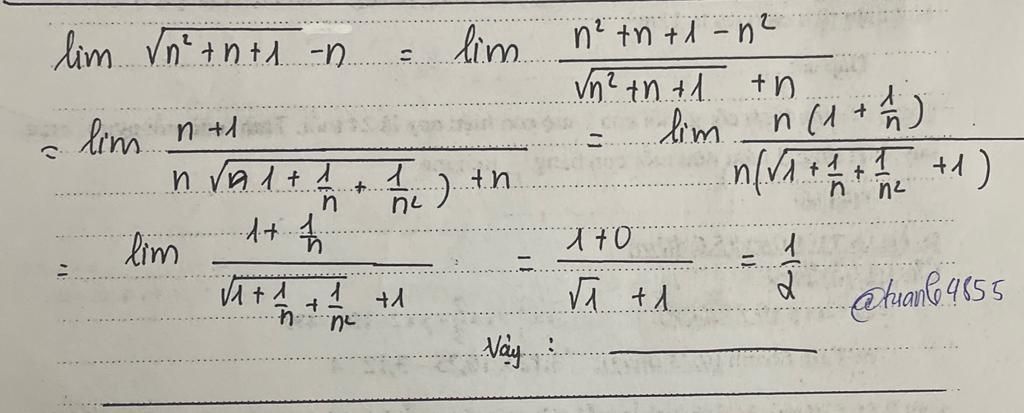 lim √(n² + n + 1) - n = lim (n² + n + 1 - n²) / (√(n² + n + 1) + n)
= lim (n + 1) / (n √(1 + 1/n + 1/n²) ) + n) = lim n (1 + 1/n) / n(√(1 + 1/n + 1/n²) + 1)
= lim (1 + 1/n) / (√(1 + 1/n + 1/n²) + 1) = (1 + 0) / (√1 + 1) = 1/2
Vậy :